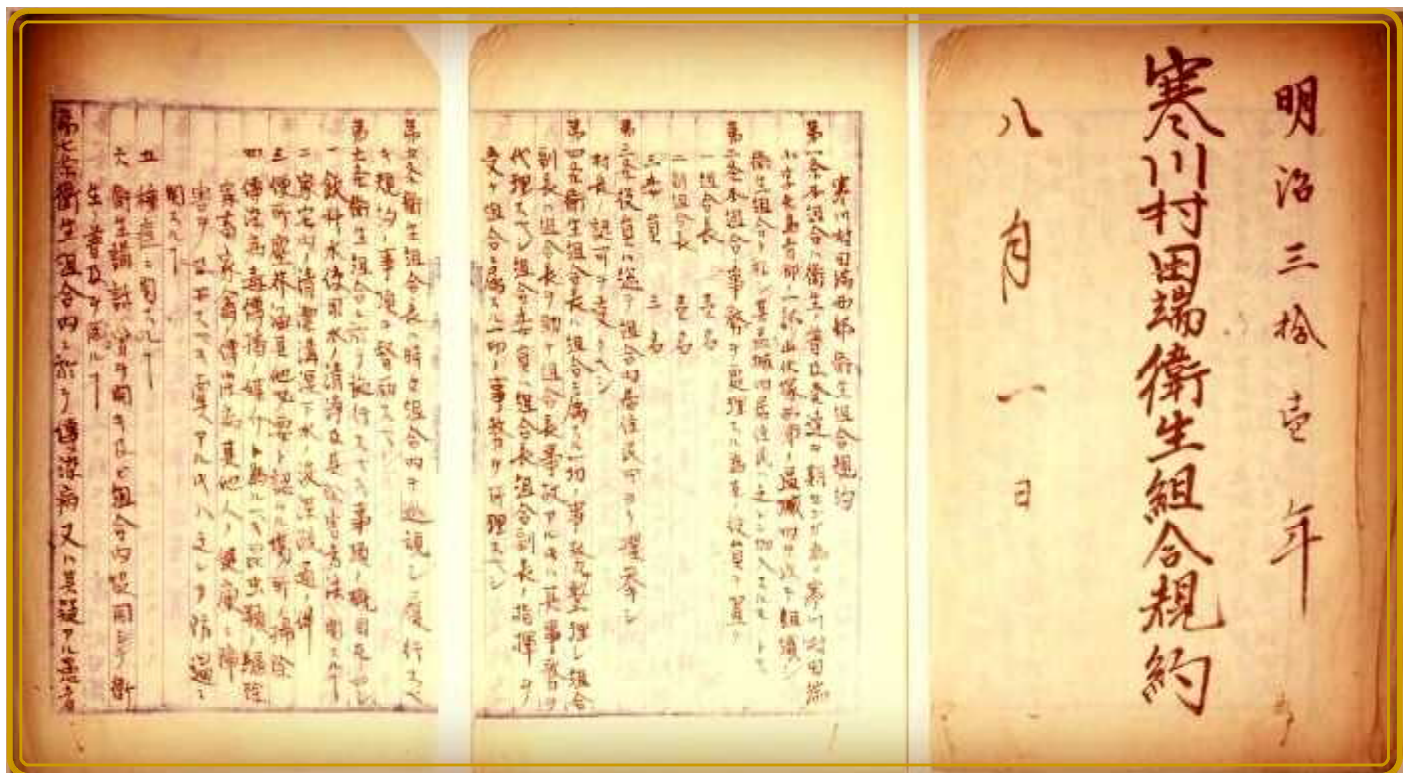 明治三拾壹年
寒川村田端衛生組合規約
八月一日
寒川村田端西部衛生組合規約
第一条本組合ハ衛生ノ普及発達ヲ期センガ為メ寒川村田端
衛生組合ト称シ其区域内居住民ハ之レニ加入スルモノトス
第二条本組合ノ事務ヲ処理スル為メ役員ヲ置ク
一組合長 壱名
二副組合長 壱名
三委員 三名
第三条役員ハ総テ組合内居住民中ヨリ選挙シ
村長ノ認可ヲ受クベシ
第四条衛生組合長ハ組合ニ属スル一切ノ事務ヲ整理シ組合
副長ハ組合長ヲ助ケ組合長事故アルトキハ其事務ヲ
代理スベシ組合委員ハ組合長組合副長ノ指揮ヲ
受ケ組合ニ属スル一切ノ事務ヲ処理スベシ
第五条衛生組合長ハ時々組合内ヲ巡視シ履行スベ
キ規約ノ事項ヲ督励スベシ
第六条衛生組合ニ於テ施行スベキ事項ノ概目左ノ如シ
一飲料水使用水ノ清浄及其
二家宅内ノ清潔溝渠下水ノ浚渫疏通ノ件
三便所塵芥溜其他必要ト認ムル場所ノ掃除
四傳染病毒傳播ノ媒介ト為ルベキ昆虫類ノ駆除
家畜家禽ノ傳染病其他人ノ健康ニ障
害ヲ及ボスベキ虞アルトキハ之レヲ防遏ニ
関スル件
五種痘ニ関スル件
六衛生講話会ヲ開キ及ビ組合内協同シテ衛
生ノ普及ヲ図ル件
第七条衛生組合内ニ於テ傳染病又ハ其疑アル患者